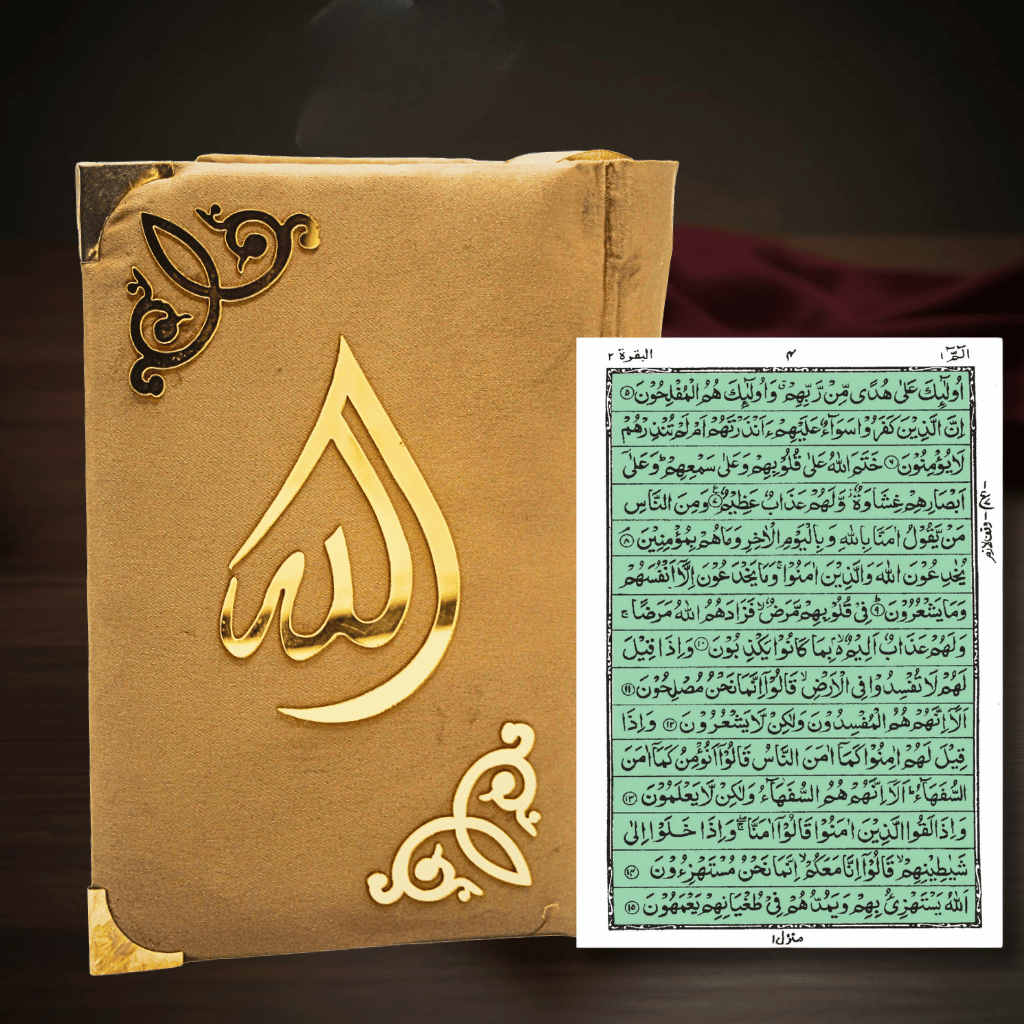 الله
الٓمّٓ ١
٤
البقرة ٢
اُولٰٓئِكَ عَلٰى هُدًى مِّنْ رَّبِّهِمْ ۙ وَاُولٰٓئِكَ هُمُ الْمُفْلِحُوْنَ ۵
اِنَّ الَّذِيْنَ كَفَرُوْا سَوَآءٌ عَلَيْهِمْ ءَاَنْذَرْتَهُمْ اَمْ لَمْ تُنْذِرْهُمْ
لَا يُؤْمِنُوْنَ ۶ خَتَمَ اللّٰهُ عَلٰى قُلُوْبِهِمْ وَعَلٰى سَمْعِهِمْ ؕ وَعَلٰٓى
اَبْصَارِهِمْ غِشَاوَةٌ ۫ وَّلَهُمْ عَذَابٌ عَظِيْمٌ ۷ وَمِنَ النَّاسِ
مَنْ يَّقُوْلُ اٰمَنَّا بِاللّٰهِ وَبِالْيَوْمِ الْاٰخِرِ وَمَا هُمْ بِمُؤْمِنِيْنَ ۘ ۸
يُخٰدِعُوْنَ اللّٰهَ وَالَّذِيْنَ اٰمَنُوْا ۚ وَمَا يَخْدَعُوْنَ اِلَّآ اَنْفُسَهُمْ
وَمَا يَشْعُرُوْنَ ؕ ۹ فِيْ قُلُوْبِهِمْ مَّرَضٌ ۙ فَزَادَهُمُ اللّٰهُ مَرَضًا ۚ
وَلَهُمْ عَذَابٌ اَلِيْمٌ ۢ ۙ بِمَا كَانُوْا يَكْذِبُوْنَ ۱۰ وَاِذَا قِيْلَ
لَهُمْ لَا تُفْسِدُوْا فِي الْاَرْضِ ۙ قَالُوْٓا اِنَّمَا نَحْنُ مُصْلِحُوْنَ ۱۱
اَلَآ اِنَّهُمْ هُمُ الْمُفْسِدُوْنَ وَلٰكِنْ لَّا يَشْعُرُوْنَ ۱۲ وَاِذَا
قِيْلَ لَهُمْ اٰمِنُوْا كَمَآ اٰمَنَ النَّاسُ قَالُوْٓا اَنُؤْمِنُ كَمَآ اٰمَنَ
السُّفَهَآءُ ؕ اَلَآ اِنَّهُمْ هُمُ السُّفَهَآءُ وَلٰكِنْ لَّا يَعْلَمُوْنَ ۱۳
وَاِذَا لَقُوا الَّذِيْنَ اٰمَنُوْا قَالُوْٓا اٰمَنَّا ۚۖ وَاِذَا خَلَوْا اِلٰى
شَيٰطِيْنِهِمْ ۙ قَالُوْٓا اِنَّا مَعَكُمْ ۙ اِنَّمَا نَحْنُ مُسْتَهْزِءُوْنَ ۱۴
اَللّٰهُ يَسْتَهْزِئُ بِهِمْ وَيَمُدُّهُمْ فِيْ طُغْيَانِهِمْ يَعْمَهُوْنَ ۱۵
وقف لازم
منزل ١